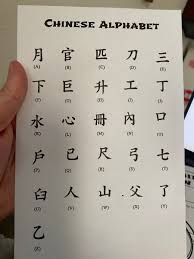 CHINESE ALPHABET
月 官 匹 刀 三
(A) (B) (C) (D) (E)
下 巨 升 工 丁
(F) (G) (H) (I) (J)
水 心 冊 內 口
(K) (L) (M) (N) (O)
戶 已 尺 弓 七
(P) (Q) (R) (S) (T)
臼 人 山 父 了
(U) (V) (W) (X) (Y)
乙
(Z)